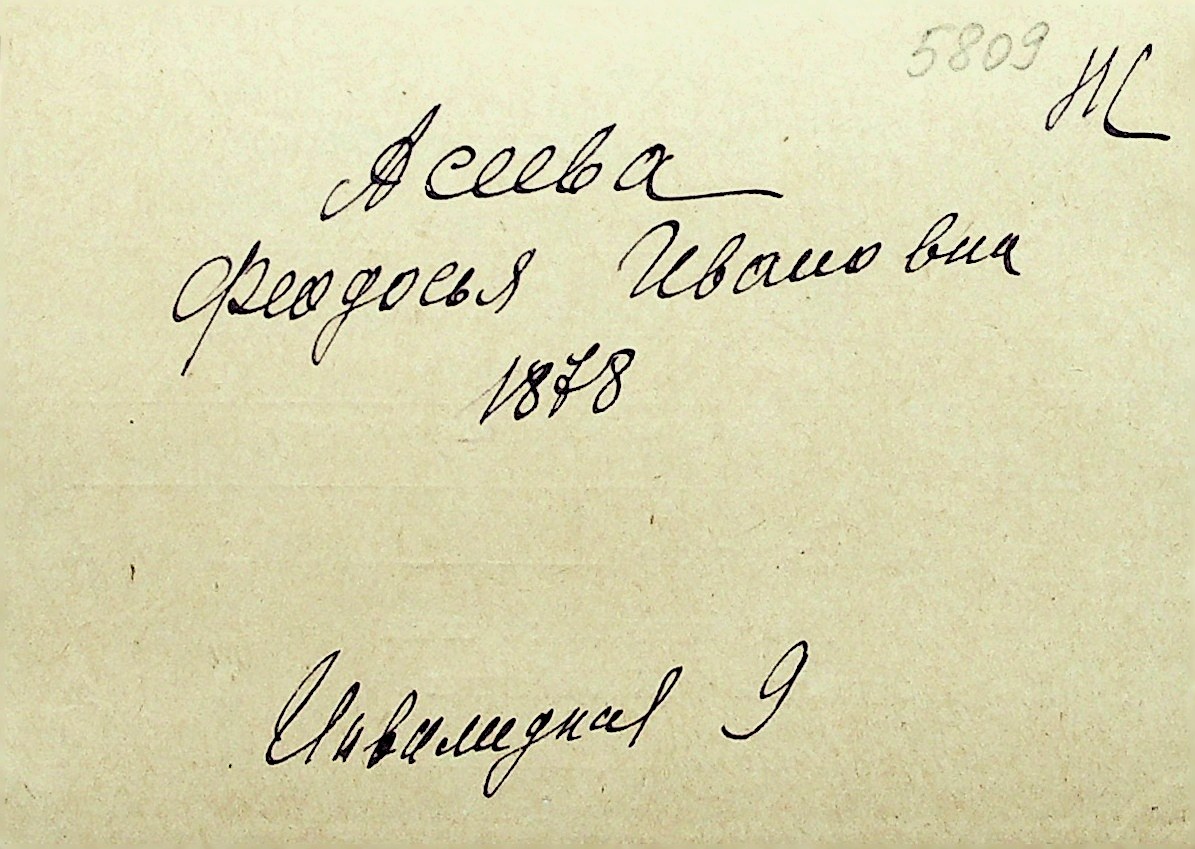 5809
Асеева
Феодосья Ивановна
1878
Инвалидная 9